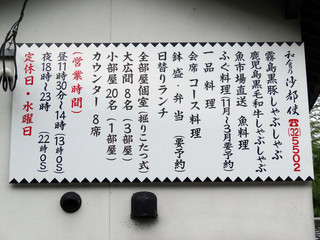 和食処 沙都使 ☎32 5502
霧島黒豚しゃぶしゃぶ
鹿児島黒毛和牛しゃぶしゃぶ
魚市場直送 魚料理
ふぐ料理(11月〜3月要予約)
一品料理
会席・コース料理
鉢盛・弁当 (要予約)
日替りランチ
全部屋個室(掘りこたつ式)
大広間80名(3部屋)
小部屋20名(1部屋)
カウンター8席
(営業時間)
昼11時30分〜14時(13時OS)
夜18時〜23時 (22時OS)
定休日・水曜日